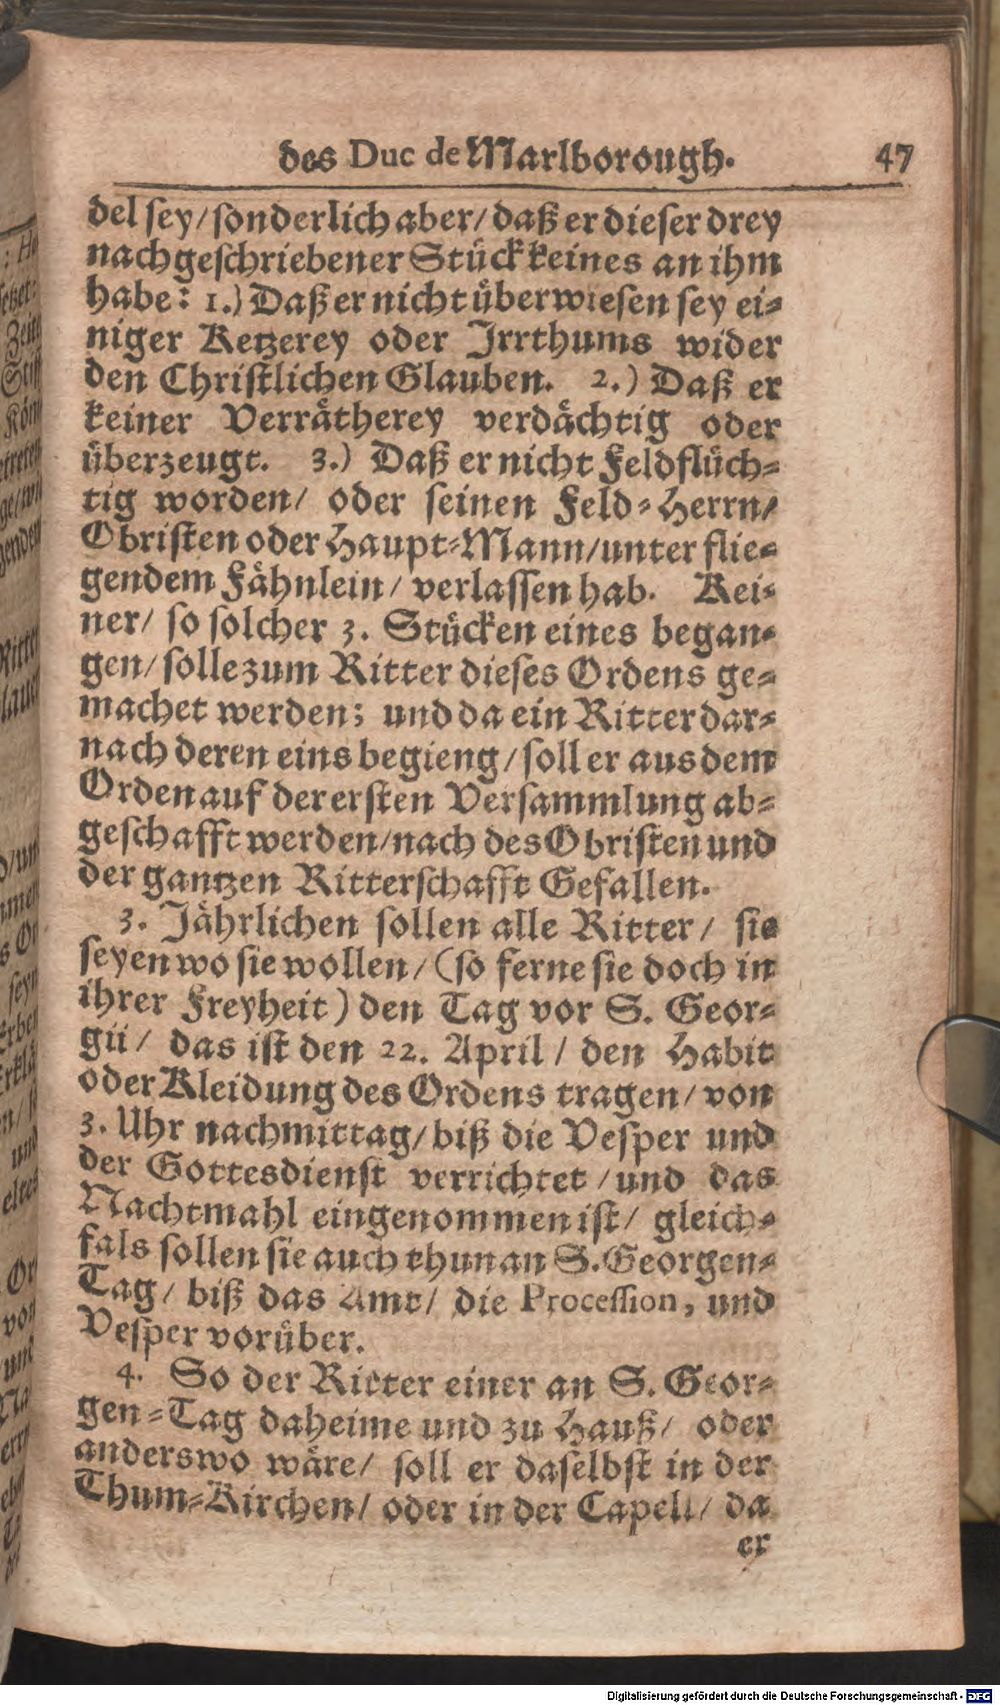 des Duc de Marlborough. 47
del sey/ sonderlich aber/ daß er dieser drey
nachgeschriebener Stück keines an ihm
habe: 1.) Daß er nicht überwiesen sey ei-
niger Ketzerey oder Irrthums wider
den Christlichen Glauben. 2.) Daß er
keiner Verrätherey verdächtig oder
überzeugt. 3.) Daß er nicht Feldflüch-
tig worden/ oder seinen Feld-Herrn/
Obristen oder Haupt-Mann/ unter flie-
gendem Fähnlein/ verlassen hab. Kei-
ner/ so solcher 3. Stücken eines began-
gen/ solle zum Ritter dieses Ordens ge-
machet werden; und da ein Ritter dar-
nach deren eins begieng/ soll er aus dem
Orden auf der ersten Versammlung ab-
geschafft werden/ nach des Obristen und
der gantzen Ritterschafft Gefallen.
3. Jährlichen sollen alle Ritter/ sie
seyen wo sie wollen/ (so ferne sie doch in
ihrer Freyheit) den Tag vor S. Geor-
gii/ das ist den 22. April/ den Habit
oder Kleidung des Ordens tragen/ von
3. Uhr nachmittag/ biß die Vesper und
der Gottesdienst verrichtet/ und das
Nachtmahl eingenommen ist/ gleich-
fals sollen sie auch thun an S. Georgen-
Tag/ biß das Amt/ die Procession, und
Vesper vorüber.
4. So der Ritter einer an S. Geor-
gen-Tag daheime und zu Hauß/ oder
anderswo wäre/ soll er daselbst in der
Thum-Kirchen/ oder in der Capell/ da
er
Digitalisierung gefördert durch die Deutsche Forschungsgemeinschaft - DFG